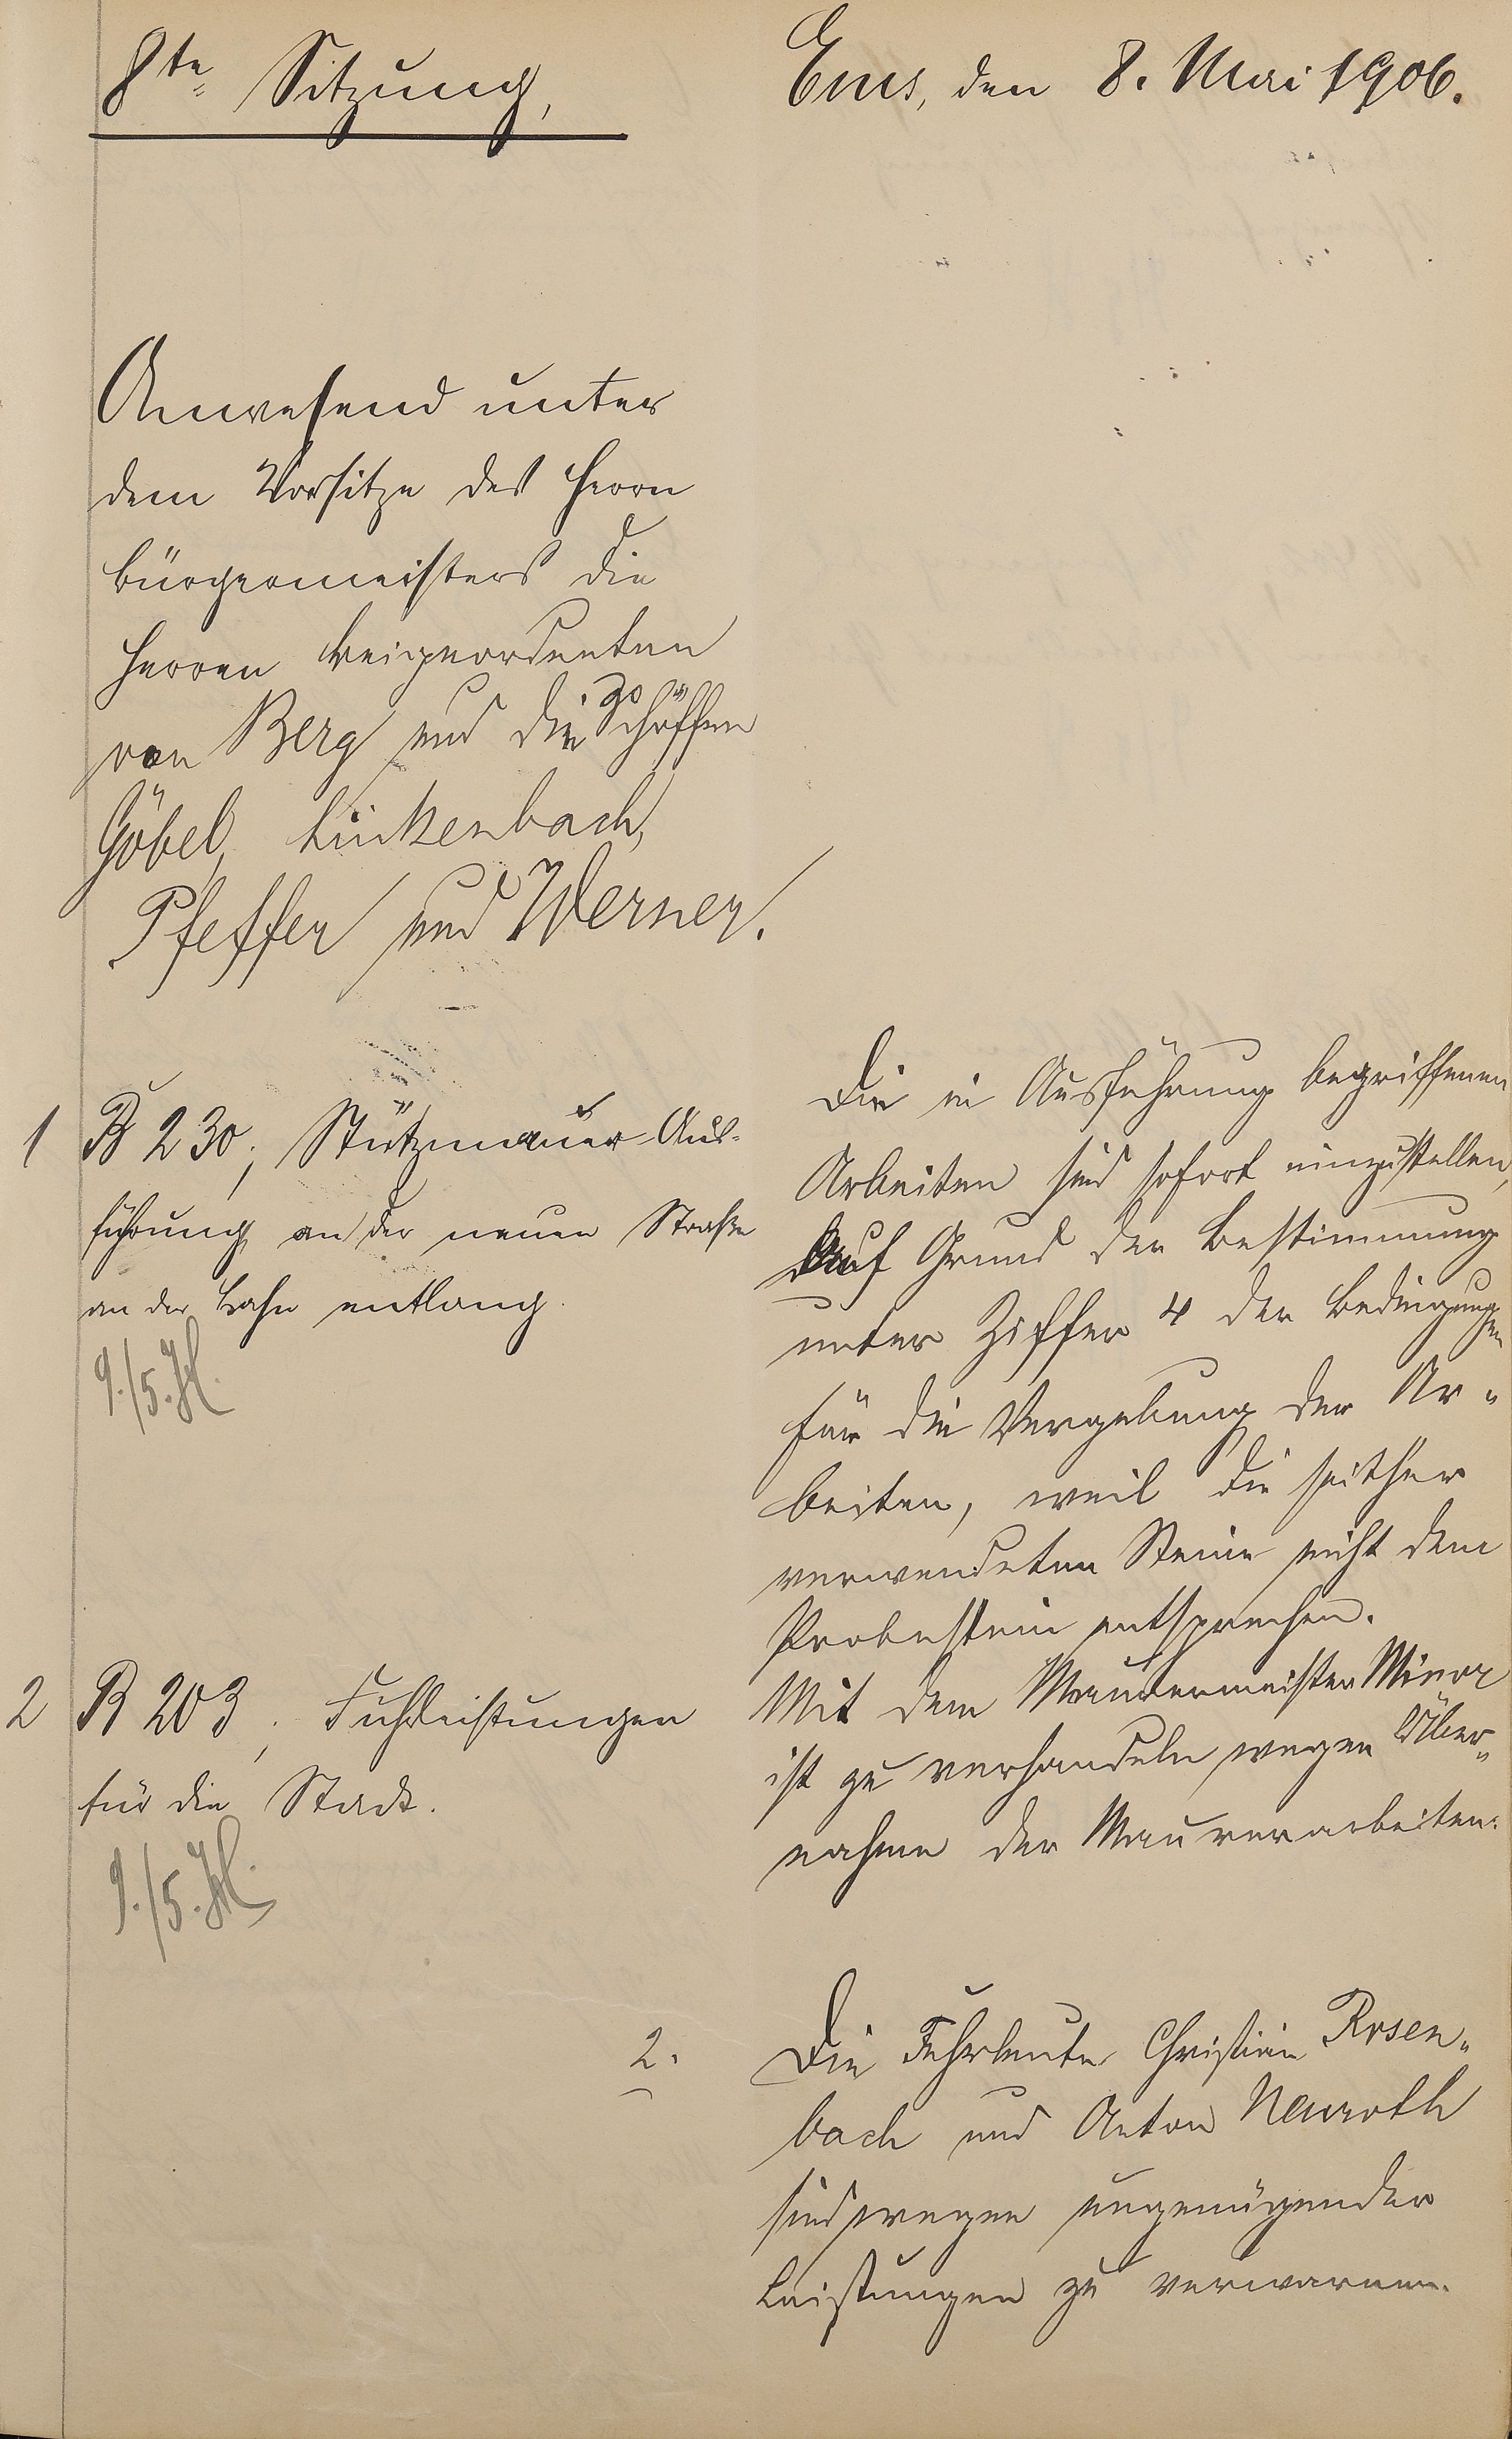 8te Sitzung,
Ems, den 8. Mai 1906.
Anwesend unter
dem Vorsitze des Herrn
Bürgermeisters die
Herren Beigeordneten
von Berg und die Schöffen
Göbel, Linkenbach,
Pfeffer und Werner.
1 B 230; Stützmauer Aus-
führung an der neuen Straße
an der Lahn entlang.
9./5. H.
Die in Ausführung begriffenen
Arbeiten sind sofort einzustellen,
Auf Grund der Bestimmung
unter Ziffer 4 der Bedingungen
für die Vergebung der Ar-
beiten, weil die seither
verwendeten Steine nicht dem
Probestein entsprechen.
Mit dem Maurermeister Minor
ist zu verhandeln wegen Über-
nahme der Maurerarbeiten.
2 R 203, Fuhrleistungen
für die Stadt.
9./5. H.
2. Die Fuhrleute Christian Rosen-
bach und Anton Neuroth
sind wegen ungenügender
Leistungen zu verwarnen.